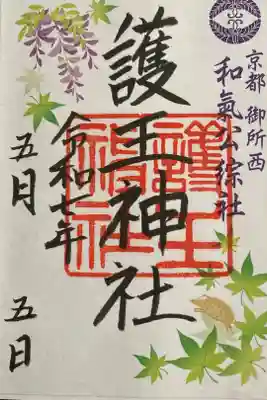 京都 御所西
和氣公綜社
護王神社
令和七年
五月 五日
護王
神社